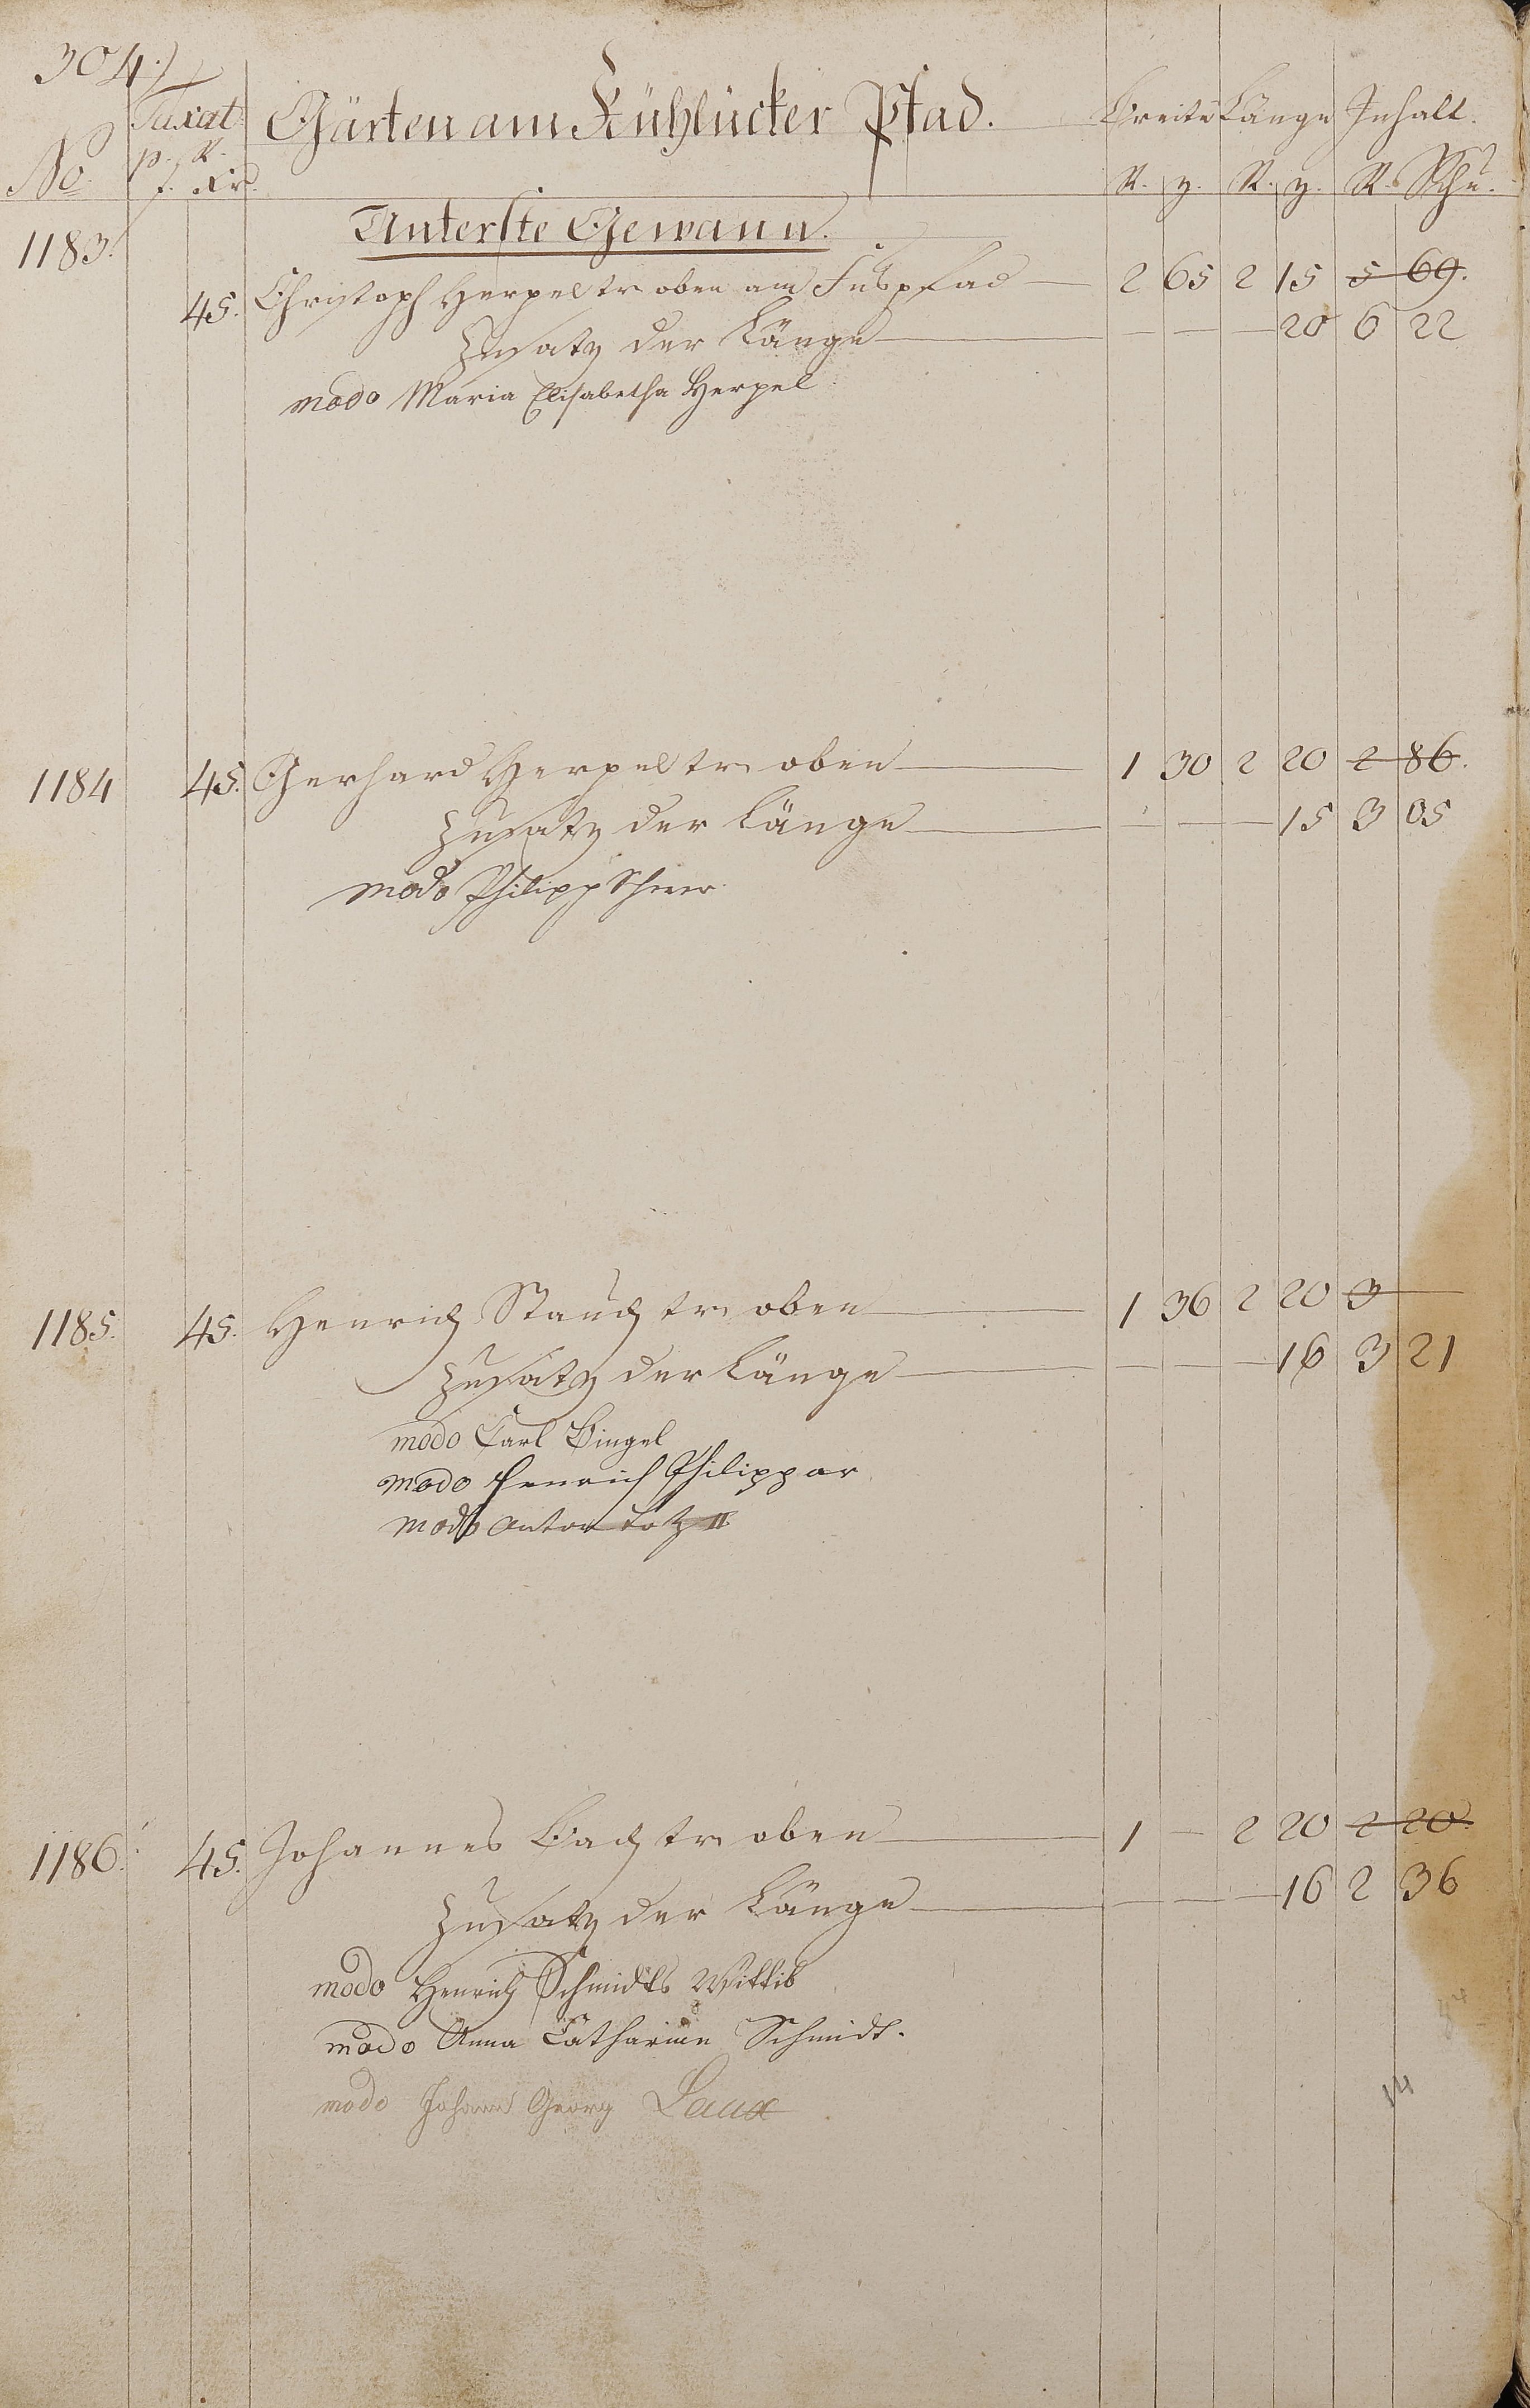 304.)
No. Taxat. Gärten am Kühlücker Pfad. Breite Länge Inhalt.
p. R. R. z. R. z. R. Schu.
f. Xr.
Unterste Gewann.
1183. 45. Christoph Herpel tr oben am Fuspfad 2 65 2 15 5 69.
Zusatz der Länge — — — 20 6 22
modo Maria Elisabetha Herpel
1184 45. Gerhard Herpel tr. oben 1 30 2 20 2 86.
Zusatz der Länge — — — 15 3 05
modo Philipp Scherer
1185. 45. Henrich Stauch tr. oben 1 36 2 20 3 —
Zusatz der Länge — — — 16 3 21
modo Carl Bingel
modo Henrich Philippar
modo Anton Lotz II
1186. 45. Johannes Bach tr. oben 1 — 2 20 2 20.
Zusatz der Länge — — — 16 2 36
modo Henrich Schmidts Wittib
modo Anna Catharine Schmidt.
modo Johann Georg Laux
14